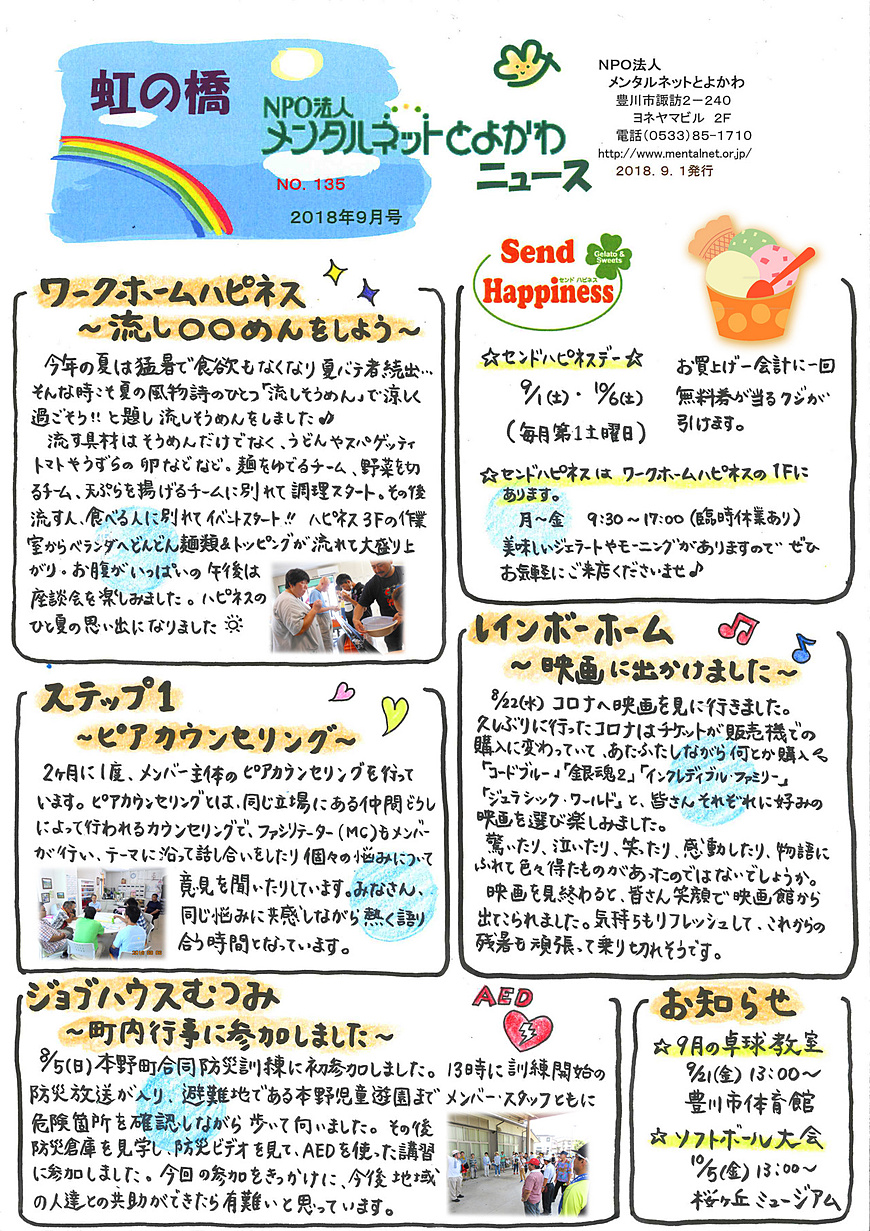 虹の橋
NPO法人
メンタルネットとよかわ
ニュース
NO. 135
2018年9月号
NPO法人
メンタルネットとよかわ
豊川市諏訪2－240
ヨネヤマビル 2F
電話(0533)85-1710
http://www.mentalnet.or.jp/
2018. 9. 1発行
ワークホームハピネス
～流し〇〇めんをしよう～
今年の夏は猛暑で食欲もなくなり夏バテ者続出…
そんな時こそ夏の風物詩のひとつ「流しそうめん」で涼しく
過ごそう!!と題し流しそうめんをしました♪
流す具材はそうめんだけでなく、うどんやスパゲッティ
トマトやうずらの卵などなど。麺をゆでるチーム、野菜を切
るチーム、天ぷらを揚げるチームに別れて調理スタート。その後
流す人、食べる人に別れてイベントスタート!! ハピネス3Fの作業
室からベランダへどんどん麺類&トッピングが流れて大盛り上
がり・お腹がいっぱいの午後は
座談会を楽しみました。ハピネスの
ひと夏の思い出になりました
Send
Happiness
センド ハピネス
Gelato &
Sweets
☆センドハピネスデー☆
9/1(土)・10/6(土)
(毎月第1土曜日)
お買上げ一会計に一回
無料券が当るクジが
引けます。
☆センドハピネスは ワークホームハピネスの1Fに
あります。
月～金 9:30～17:00(臨時休業あり)
美味しいジェラートやモーニングがありますので ぜひ
お気軽にご来店くださいませ♪
ステップ1
～ピアカウンセリング～
2ヶ月に1度、メンバー主体のピアカウンセリングを行って
います。ピアカウンセリングとは、同じ立場にある仲間どうし
によって行われるカウンセリングで、ファシリテーター(MC)もメンバー
が行い、テーマに沿って話し合いをしたり個々の悩みについて
意見を聞いたりしています。みなさん、
同じ悩みに共感しながら熱く語り
合う時間となっています。
レインボーホーム
～映画に出かけました～
8/22(水)コロナへ映画を見に行きました。
久しぶりに行ったコロナはチケットが販売機での
購入に変わっていて、あたふたしながら何とか購入
「コードブルー」「銀魂2」「インクレディブル・ファミリー」
「ジュラシック・ワールド」と、皆さんそれぞれに好みの
映画を選び楽しみました。
驚いたり、泣いたり、笑ったり、感動したり、物語に
ふれて色々得たものがあったのではないでしょうか。
映画を見終わると、皆さん笑顔で映画館から
出てこられました。気持ちもリフレッシュして、これからの
残暑も頑張って乗り切れそうです。
ジョブハウスむつみ
～町内行事に参加しました～
AED
8/5(日)本野町合同防災訓練に初参加しました。13時に訓練開始の
防災放送が入り、避難地である本野児童遊園までメンバー・スタッフともに
危険箇所を確認しながら歩いて向いました。その後
防災倉庫を見学し、防災ビデオを見て、AEDを使った講習
に参加しました。今回の参加をきっかけに、今後地域
の人達との共助ができたら有難いと思っています。
お知らせ
☆9月の卓球教室
9/21(金)13:00～
豊川市体育館
☆ソフトボール大会
10/5(金)13:00～
桜ヶ丘ミュージアム